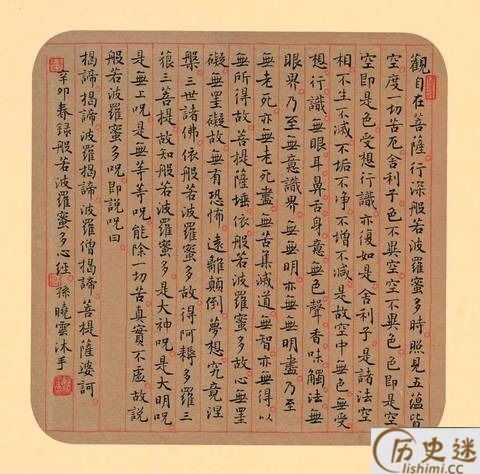 觀自在菩薩行深般若波羅蜜多時照見五蘊皆
空度一切苦厄舍利子色不異空空不異色色即是空
空即是色受想行識亦復如是舍利子是諸法空
相不生不滅不垢不净不增不減是故空中無色無受
想行識無眼耳鼻舌身意無色聲香味觸法無
眼界乃至無意識界無無明亦無無明盡乃至
無老死亦無老死盡無苦集滅道無智亦無得以
無所得故菩提薩埵依般若波羅蜜多故心無罣
礙無罣礙故無有恐怖遠離顛倒夢想究竟涅
槃三世諸佛依般若波羅蜜多故得阿耨多羅三
藐三菩提故知般若波羅蜜多是大神呪是大明呪
是無上呪是無等等呪能除一切苦真實不虛故說
般若波羅蜜多呪即說呪曰
揭諦揭諦波羅揭諦波羅僧揭諦菩提薩婆訶
辛卯春録般若波羅蜜多心經 孫曉雲沐手
历史迷
lishimi.cc